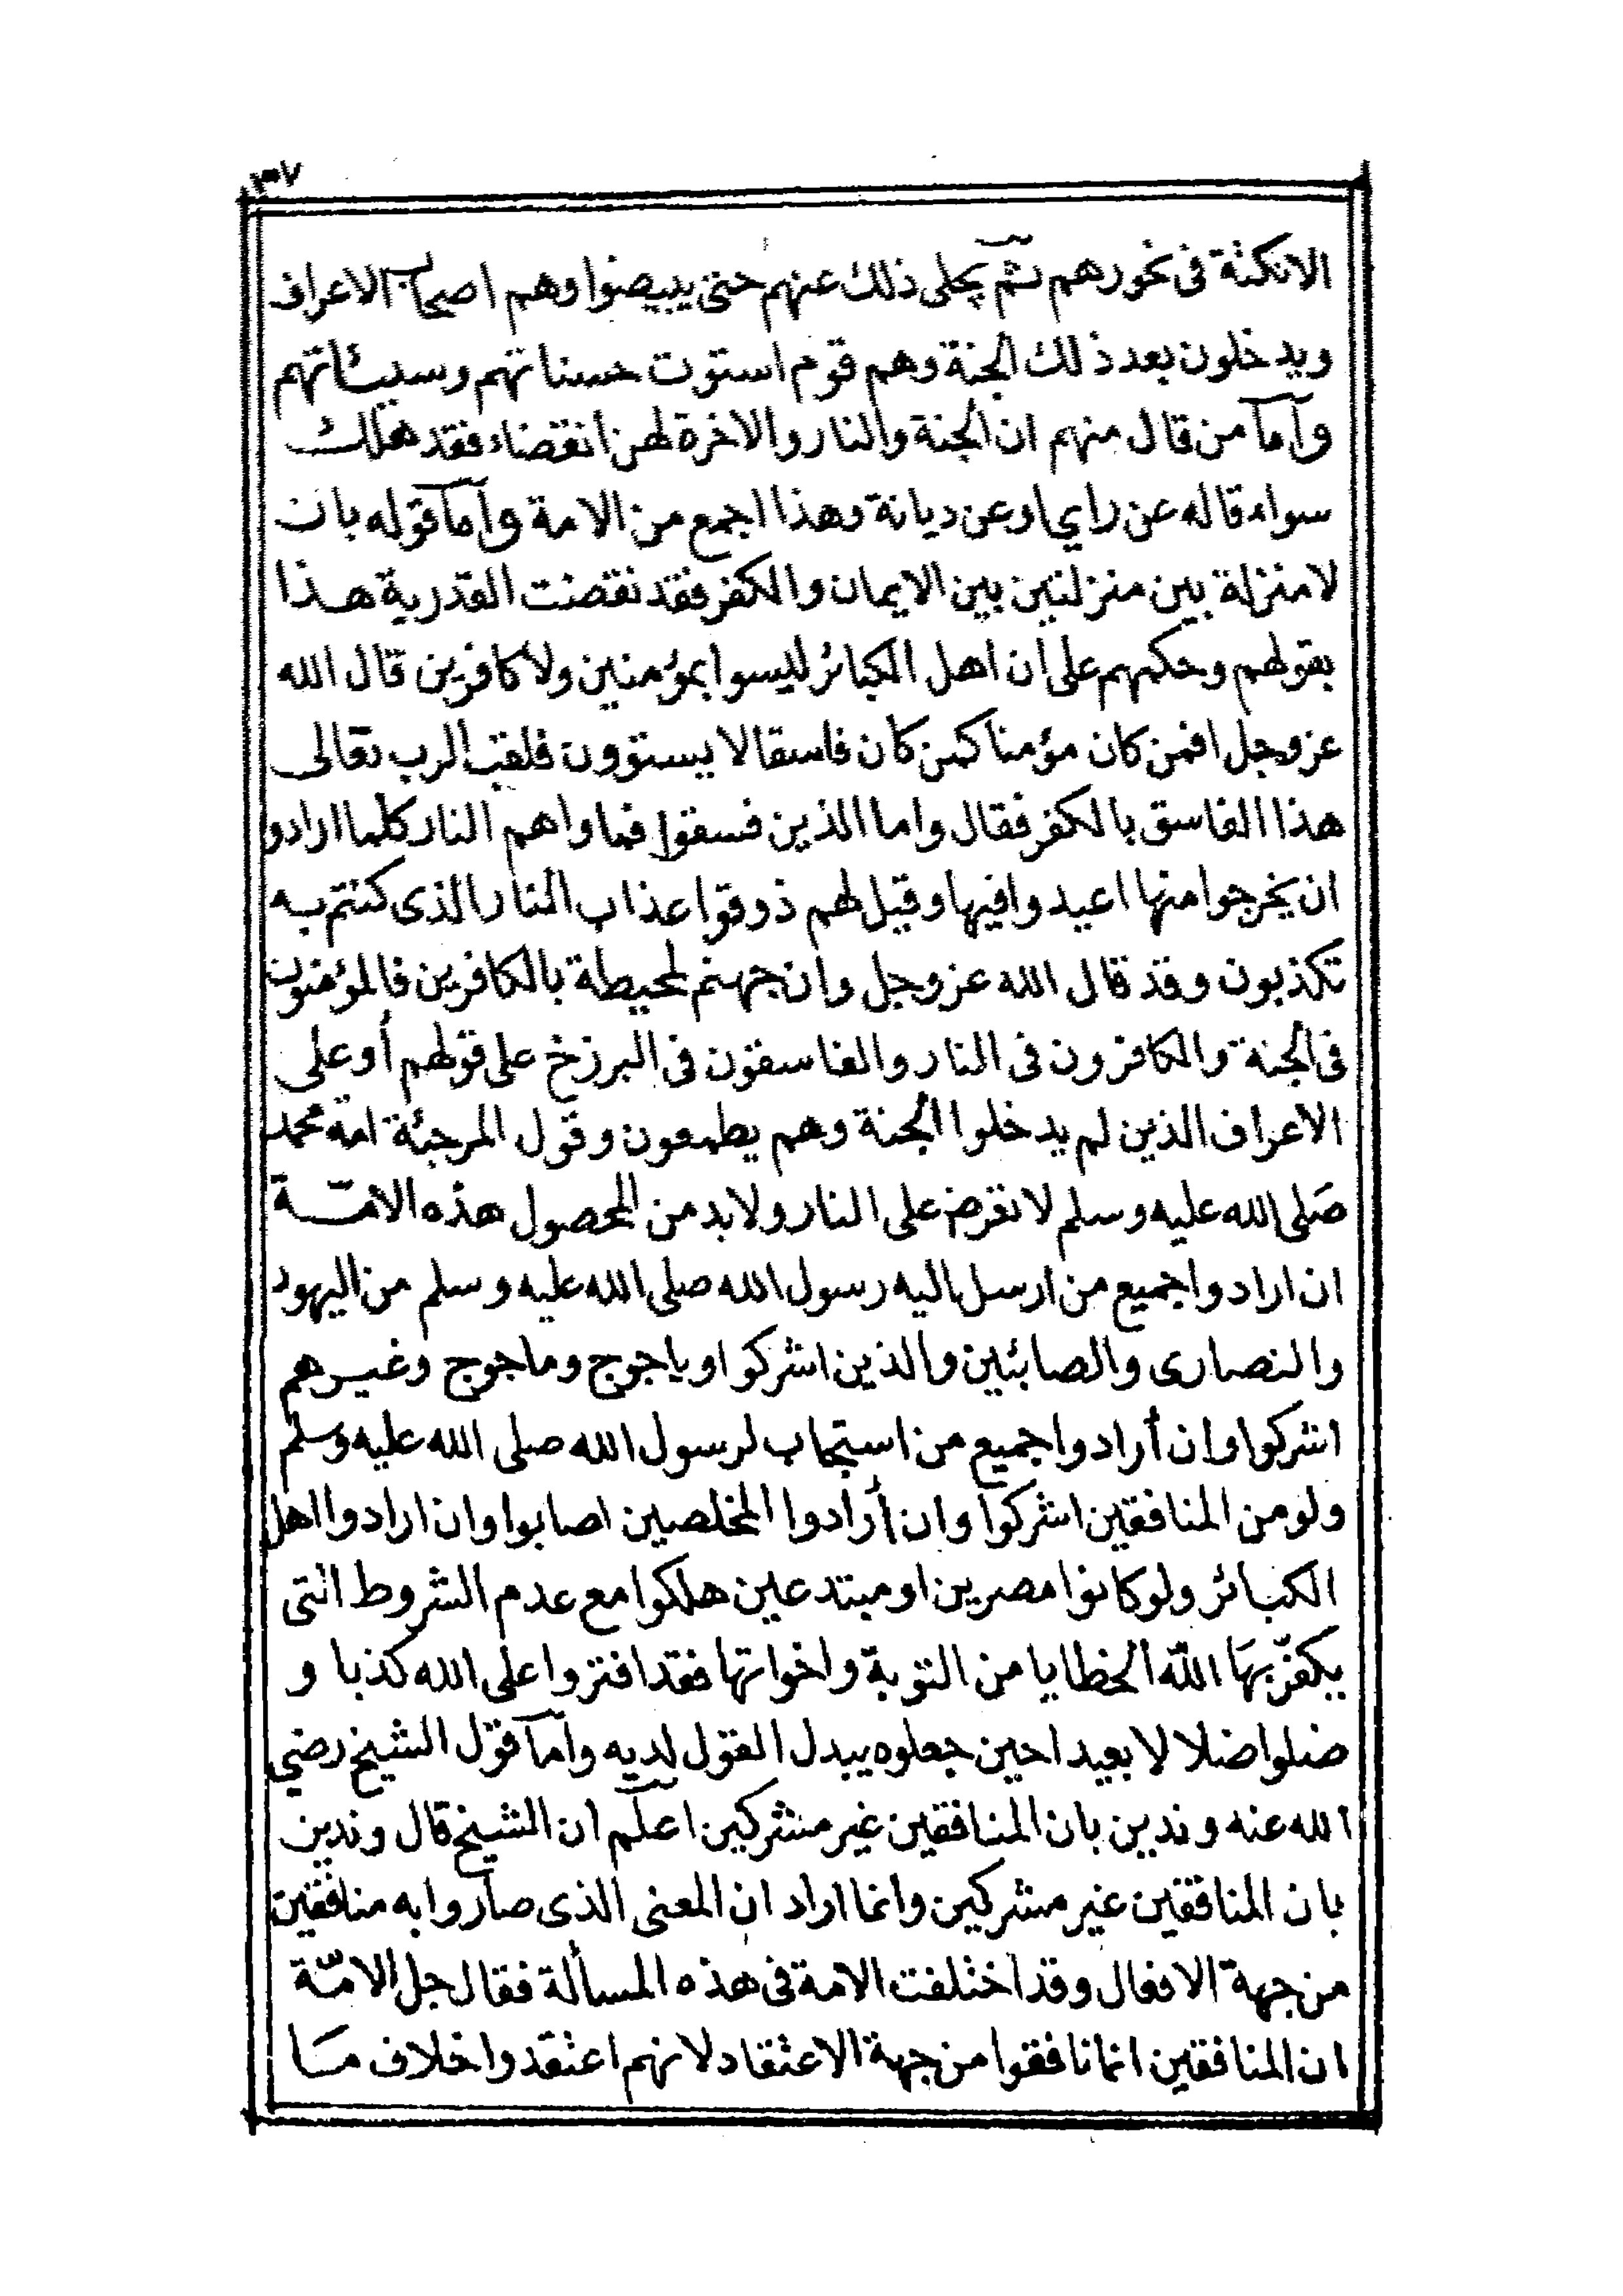 ٣٧
الا نكتة فى نحورهم ثم يجلى ذلك عنهم حتى يبيضوا وهم اصحاب الاعراف
ويدخلون بعد ذلك الجنة وهم قوم استوت حسناتهم وسيئاتهم
وآما من قال منهم ان الجنة والنار والاخرة لهن انقضاء فقد هلك
سواء قاله عن راي او عن ديانة وهذا اجمع من الامة وآما قوله بان
لا منزلة بين منزلتين بين الايمان والكفر فقد نقضت القدرية هذا
بقولهم وحكمهم على ان اهل الكبائر ليسوا بمؤمنين ولا كافرين قال الله
عز وجل افمن كان مؤمنا كمن كان فاسقا لا يستوون فلقب الرب تعالى
هذا الفاسق بالكفر فقال واما الذين فسقوا فماواهم النار كلما ارادو
ان يخرجوا منها اعيدوا فيها وقيل لهم ذوقوا عذاب النار الذى كنتم به
تكذبون وقد قال الله عز وجل وان جهنم لمحيطة بالكافرين فالمؤمنون
فى الجنة والكافرون فى النار والفاسقون فى البرزخ على قولهم أو على
الاعراف الذين لم يدخلوا الجنة وهم يطمعون وقول المرجئة امة محمد
صَلى الله عليه وسلم لا تعرض على النار ولا بد من المحصول هذه الامّة
ان ارادوا جميع من ارسل اليه رسول الله صلى الله عليه وسلم من اليهود
والنصارى والصابئين والذين اشركوا وياجوج وماجوج وغيرهم
اشركوا وان أرادوا جميع من استجاب لرسول الله صلى الله عليه وسلم
ولو من المنافقين اشركوا وان أرادوا المخلصين اصابوا وان ارادوا اهل
الكبائر ولو كانوا مصرين او مبتدعين هلكوا مع عدم الشروط التى
يكفّر بهَا اللّه الخطايا من التوبة واخواتها فقد افتروا على الله كذبا و
ضلوا ضلالا بعيدا حين جعلوه يبدل القول لديه وآما قول الشيخ رضي
الله عنه وندين بان المنافقين غير مشركين اعلم ان الشيخ قال وندين
بان المنافقين غير مشركين وانما اراد ان المعنى الذى صاروا به منافقين
من جهة الافعال وقد اختلفت الامة فى هذه المسألة فقال جل الامّة
ان المنافقين انما نافقوا من جهة الاعتقاد لانهم اعتقدوا خلاف مَا